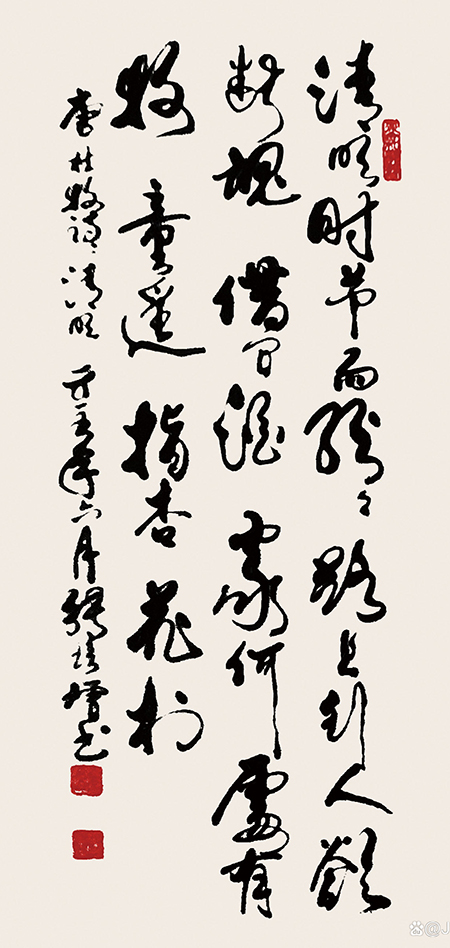 清明时节雨纷々路上行人欲
断魂借问酒家何處有
牧童遥指杏花村
唐杜牧诗清明 年六月 书
@J